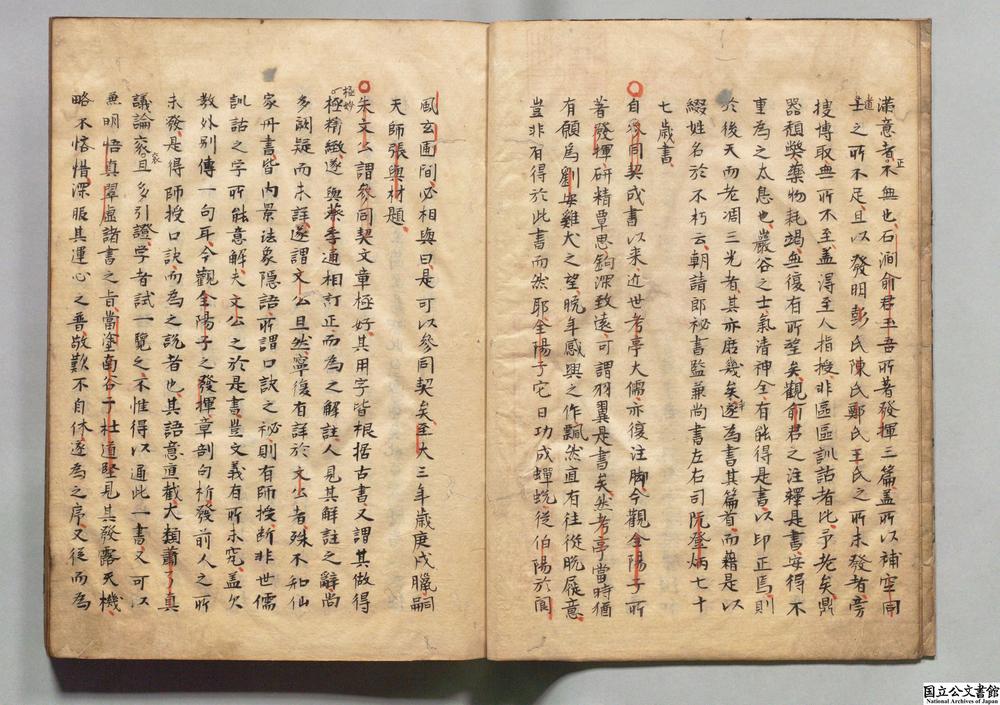 滿意者不無也石澗俞君玉吾所著發揮三篇盖所以補空同
道士之所不足且以發明彭氏陳氏鄭氏王氏之所未發者旁
搜博取無所不至盖得至人指授非區區訓詁者比予老矣鼎
器頹獘藥物耗竭無復有所望矣觀俞君之注釋是書安得不
重為之太息也巖谷之士氣清神全有能得是書以印正焉則
於後天而老凋三光者其亦庶幾矣遂為書其篇首而藉是以
綴姓名於不朽云朝請郎秘書監兼尚書左右司阮登炳七十
七歲書
自參同契成書以来近世考亭大儒亦復注脚今觀全陽子所
著發揮研精覃思鈎深致遠可謂羽翼是書矣然考亭當時猶
有願為劉安雞犬之望晩年感興之作飄然直有往從脫屣意
豈非有得於此書而然耶全陽子它日功成蟬蛻從伯陽於閬
風玄圃間必相與曰是可以參同契矣至大三年歲庚戌臘嗣
天師張與材題
朱文公謂參同契文章極好其用字皆根据古書又謂其做得
極妙
極精緻遂與蔡季通相訂正而為之解註人見其解註之辭尚
多闕疑而未詳遂謂文公且然寧復有詳於文公者殊不知仙
家丹書皆内景法象隱語所謂口訣之秘則有師授斷非世儒
訓詁之字所能意解夫文公之於是書豈文義有所未究盖欠
教外別傳一句耳今觀全陽子之發揮章剖句析發前人之所
未發是得師授口訣而為之說者也其語意直截大類蕭了真
議論衮且多引證學者試一覽之不惟得以通此一書又可以
兼明悟真翠虛諸書之旨當塗南谷子杜道堅見其發露天機
略不悋惜深服其運心之普敬歎不自休遂為之序又從而為
国立公文書館
National Archives of Japan